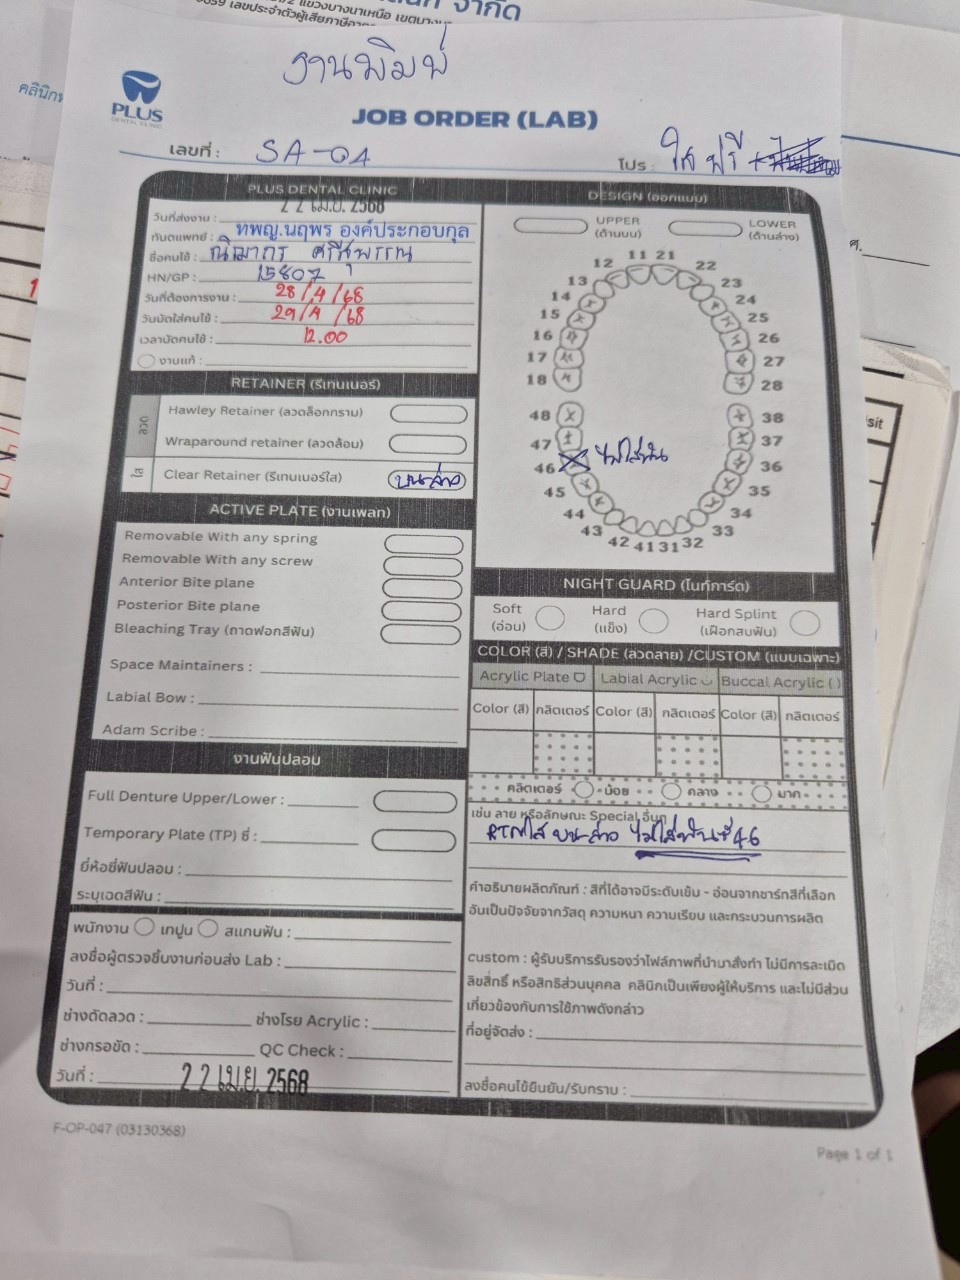 จำกัด
แขวงบางนาเหนือ
เลขประจำตัวผู้เสียภาษี
งานพิมพ์
PLUS
DENTAL CLINIC
JOB ORDER (LAB)
เลขที่ : SA-04
โปร : ใส ฟรี
PLUS DENTAL CLINIC
วันที่ส่งงาน : 22 เม.ย. 2568
ทันตแพทย์ : ทพญ.นฤพร องค์ประกอบกุล
ชื่อคนไข้ :
HN/GP : 15807
วันที่ต้องการงาน : 28/4/68
วันนัดใส่คนไข้ : 29/4/68
เวลานัดคนไข้ : 12.00
งานแก้ :
RETAINER (รีเทนเนอร์)
ลวด
Hawley Retainer (ลวดล็อกกราม)
Wraparound retainer (ลวดล้อม)
ใส
Clear Retainer (รีเทนเนอร์ใส) บน-ล่าง
ACTIVE PLATE (งานเพลท)
Removable With any spring
Removable With any screw
Anterior Bite plane
Posterior Bite plane
Bleaching Tray (ถาดฟอกสีฟัน)
Space Maintainers :
Labial Bow :
Adam Scribe :
งานฟันปลอม
Full Denture Upper/Lower :
Temporary Plate (TP) ซี่ :
ยี่ห้อซี่ฟันปลอม :
ระบุเฉดสีฟัน :
พนักงาน เทปูน สแกนฟัน :
ลงชื่อผู้ตรวจชิ้นงานก่อนส่ง Lab :
วันที่ :
ช่างดัดลวด : ช่างโรย Acrylic :
ช่างกรอขัด : QC Check :
วันที่ : 22 เม.ย. 2568
DESIGN (ออกแบบ)
UPPER (ด้านบน)
LOWER (ด้านล่าง)
11 21
12 22
13 23
14 24
15 25
16 26
17 27
18 28
48 38
47 37
46 ไม่ใส่ฟัน 36
45 35
44 34
43 33
42 41 31 32
NIGHT GUARD (ไนท์การ์ด)
Soft (อ่อน)
Hard (แข็ง)
Hard Splint (เฝือกสบฟัน)
COLOR (สี) / SHADE (ลวดลาย) /CUSTOM (แบบเฉพาะ)
Acrylic Plate Labial Acrylic Buccal Acrylic ( )
Color (สี) กลิตเตอร์ Color (สี) กลิตเตอร์ Color (สี) กลิตเตอร์
กลิตเตอร์ น้อย กลาง มาก
เช่น ลาย หรือลักษณะ Special อื่นๆ
RTNใส บน-ล่าง ไม่ใส่ฟันซี่ 46
คำอธิบายผลิตภัณฑ์ : สีที่ได้อาจมีระดับเข้ม - อ่อนจากชาร์ทสีที่เลือก
อันเป็นปัจจัยจากวัสดุ ความหนา ความเรียบ และกระบวนการผลิต
custom : ผู้รับบริการรับรองว่าไฟล์ภาพที่นำมาสั่งทำ ไม่มีการละเมิด
ลิขสิทธิ์ หรือสิทธิส่วนบุคคล คลินิกเป็นเพียงผู้ให้บริการ และไม่มีส่วน
เกี่ยวข้องกับการใช้ภาพดังกล่าว
ที่อยู่จัดส่ง :
ลงชื่อคนไข้ยืนยัน/รับทราบ :
F-OP-047 (03130368)
Page 1 of 1